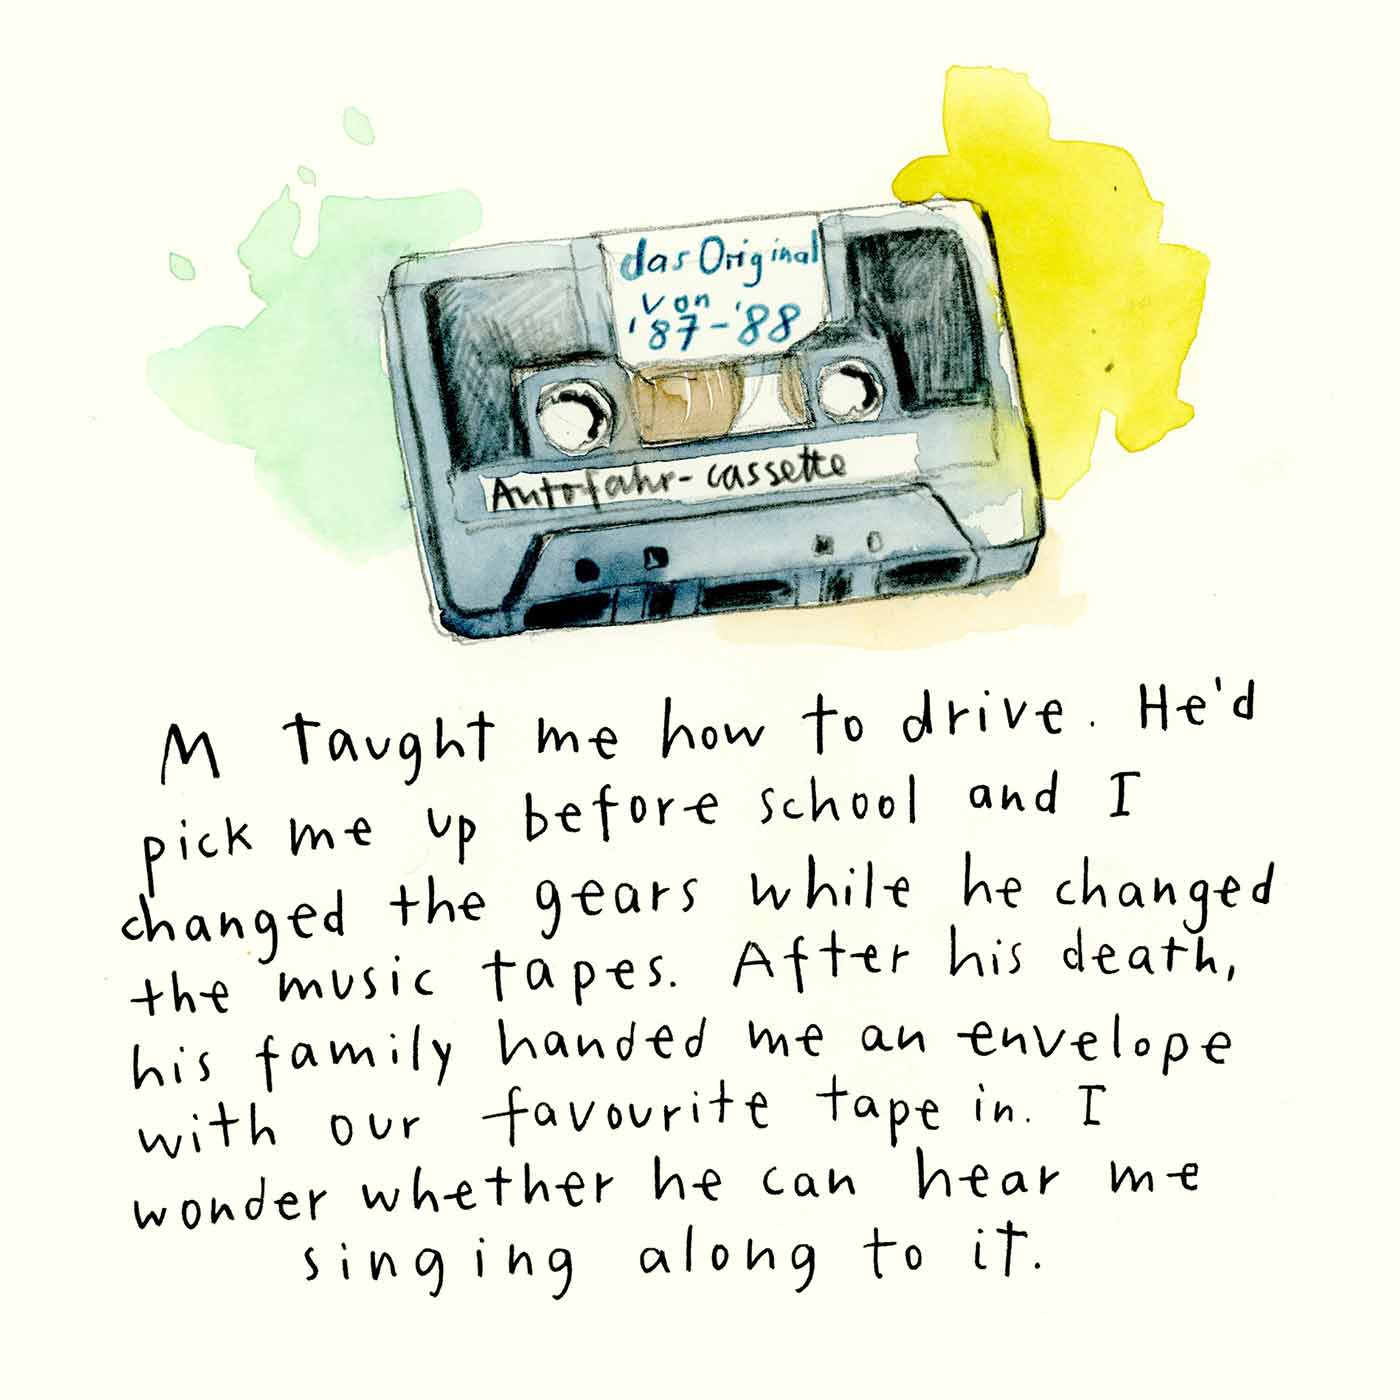 das Original
von
'87-'88
Autofahr-cassette
M taught me how to drive. He'd
pick me up before school and I
changed the gears while he changed
the music tapes. After his death,
his family handed me an envelope
with our favourite tape in. I
wonder whether he can hear me
singing along to it.